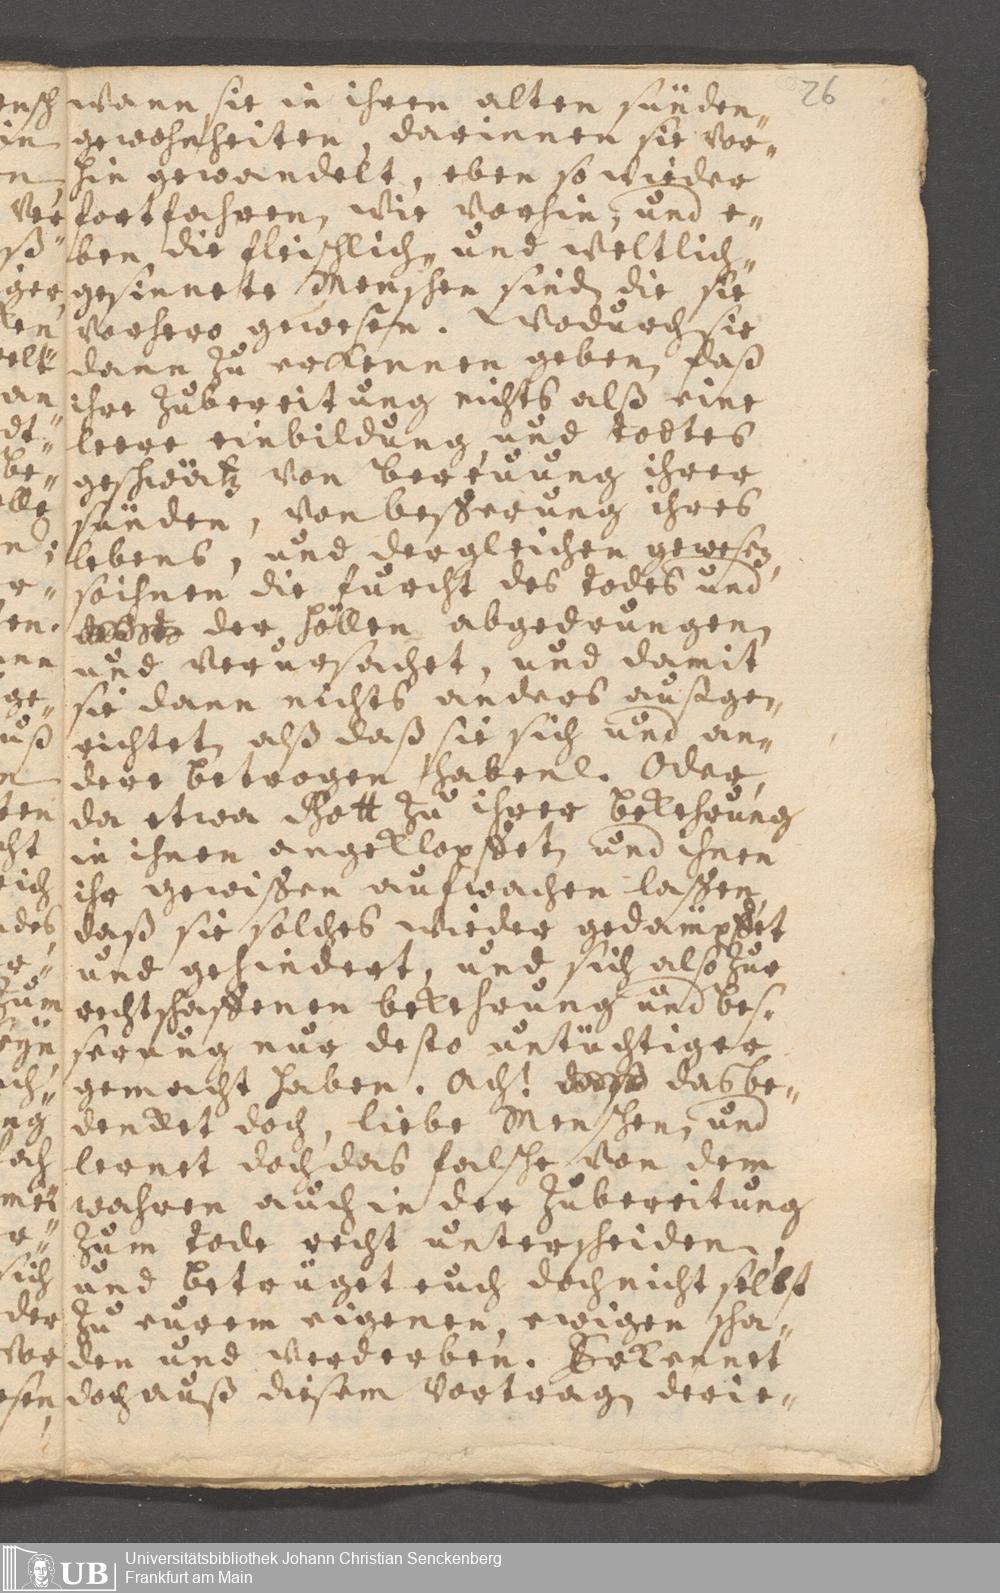 26
wann sie in ihren alten sünden-
gewohnheiten, darinnen sie vor-
hin gewandelt, eben so wieder
fortfahren, wie vorhin, und e-
ben die fleischlich- und weltlich-
gesinnete Menschen sind, die sie
vorhero gewesen. Wodurch sie
dann zu erkennen geben, daß
ihre Zubereitung nichts alß eine
leere einbildung und todtes
geschwätz von bereuung ihrer
sünden, von besserung ihres
lebens, und dergleichen gewesen,
so ihnen die furcht des todes und
der höllen abgedrungen
und verursachet, und damit
sie dann nichts anders außge-
richtet, alß daß sie sich und an-
dere betrogen haben. Oder,
da etwa Gott zu ihrer bekehrung
in ihnen angeklopffet, und ihnen
ihr gewissen aufwachen lassen,
daß sie solches wieder gedämpffet
und gehindert, und sich also zur
rechtschaffenen bekehrung und bes-
serung nur desto untüchtiger
gemacht haben. Ach! das be-
dencket doch, liebe Menschen, und
lernet doch das falsche von dem
wahren auch in der Zubereitung
zum tode recht unterscheiden,
und betrüget euch doch nicht selbst
zu eurem eigenen, ewigen scha-
den und verderben. Erkennet
doch auß diesem Vortrag, derie-
UB
Universitätsbibliothek Johann Christian Senckenberg
Frankfurt am Main